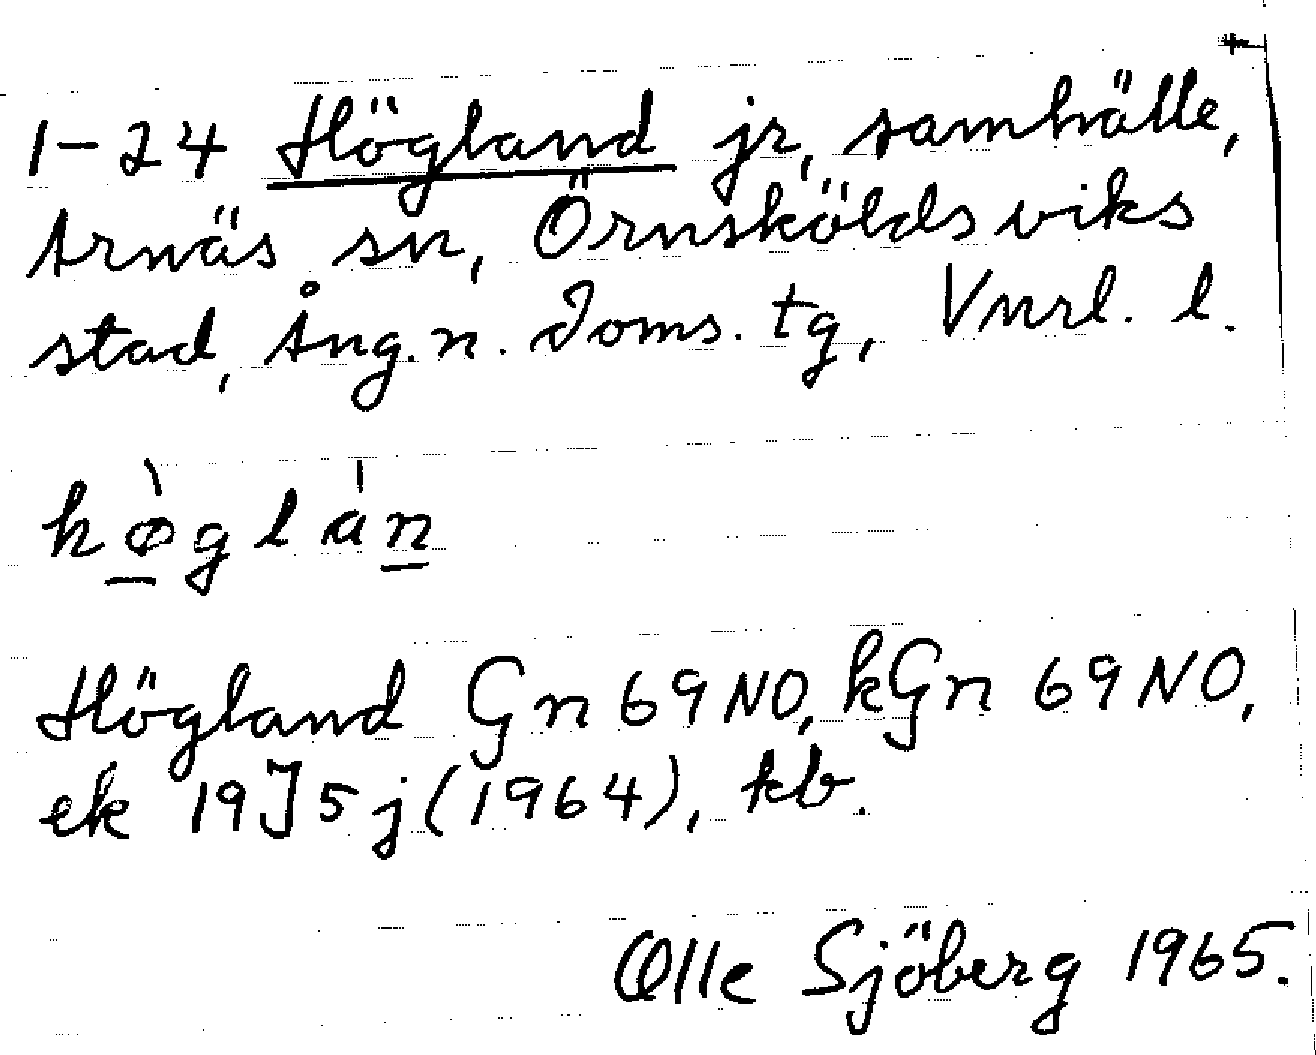 1-24 Högland jr, samhälle,
Arnäs sn, Örnsköldsviks
stad, Ång.n. Doms. tg, Vnrl. l.
hø̀glán
Högland Gn 69 NO, kGn 69 NO,
ek 19J5j (1964), kb.
Olle Sjöberg 1965.